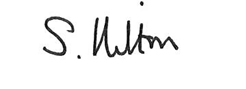 S. Hilton